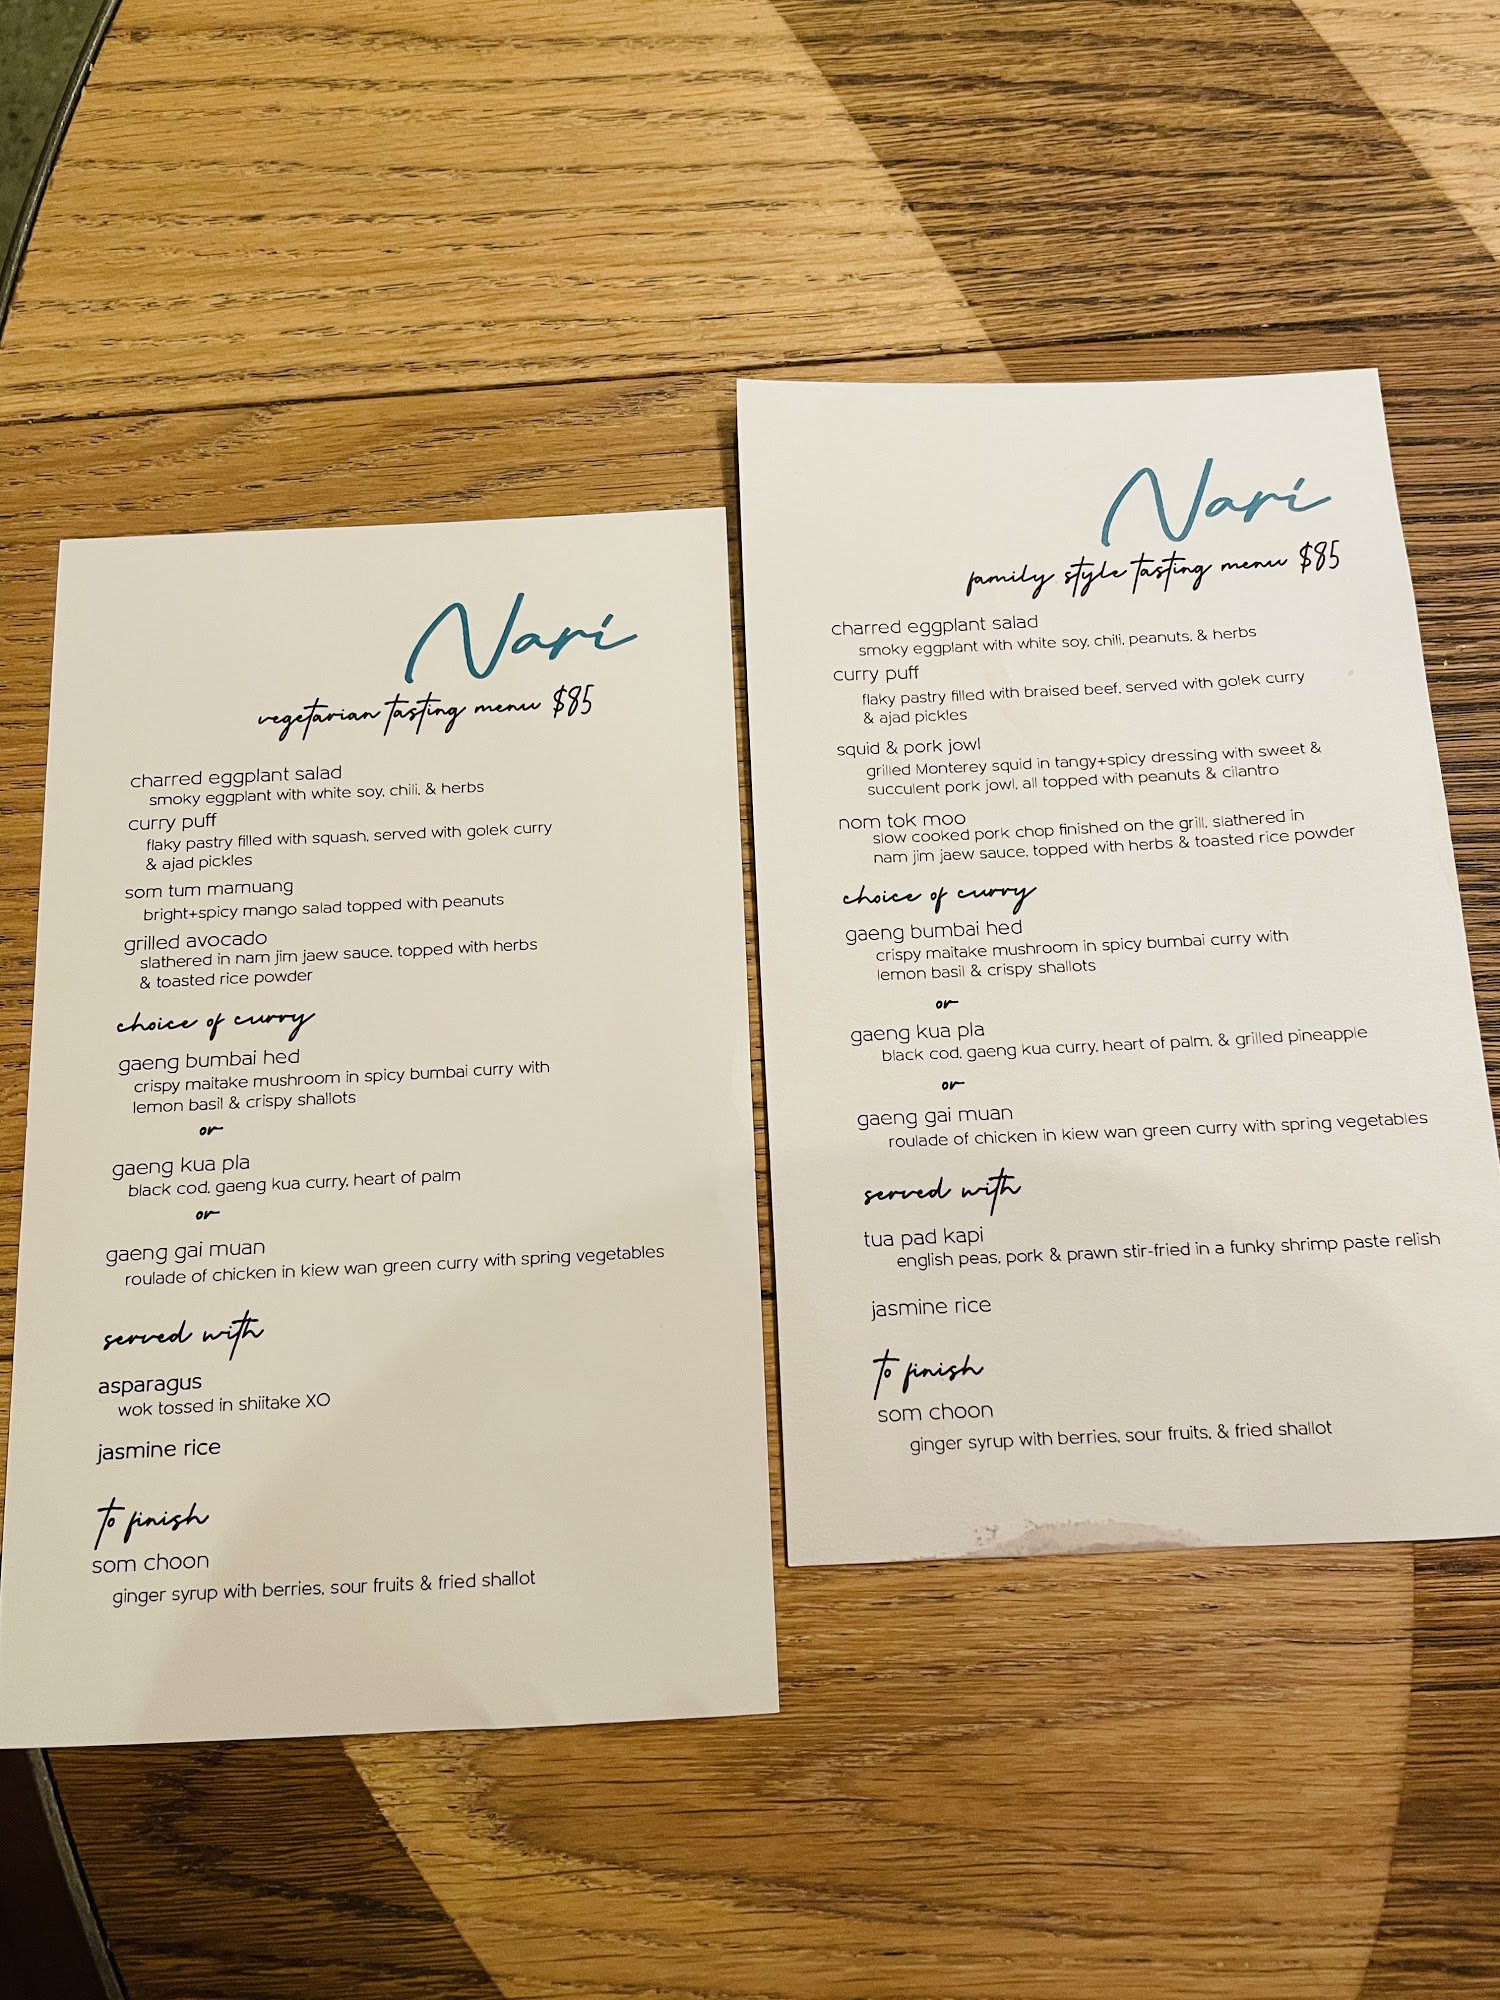 Nari
vegetarian tasting menu $85
charred eggplant salad
smoky eggplant with white soy, chili, & herbs
curry puff
flaky pastry filled with squash, served with golek curry
& ajad pickles
som tum mamuang
bright+spicy mango salad topped with peanuts
grilled avocado
slathered in nam jim jaew sauce, topped with herbs
& toasted rice powder
choice of curry
gaeng bumbai hed
crispy maitake mushroom in spicy bumbai curry with
lemon basil & crispy shallots
or
gaeng kua pla
black cod, gaeng kua curry, heart of palm
or
gaeng gai muan
roulade of chicken in kiew wan green curry with spring vegetables
served with
asparagus
wok tossed in shiitake XO
jasmine rice
to finish
som choon
ginger syrup with berries, sour fruits & fried shallot
Nari
family style tasting menu $85
charred eggplant salad
smoky eggplant with white soy, chili, peanuts, & herbs
curry puff
flaky pastry filled with braised beef, served with golek curry
& ajad pickles
squid & pork jowl
grilled Monterey squid in tangy+spicy dressing with sweet &
succulent pork jowl, all topped with peanuts & cilantro
nom tok moo
slow cooked pork chop finished on the grill, slathered in
nam jim jaew sauce, topped with herbs & toasted rice powder
choice of curry
gaeng bumbai hed
crispy maitake mushroom in spicy bumbai curry with
lemon basil & crispy shallots
or
gaeng kua pla
black cod, gaeng kua curry, heart of palm, & grilled pineapple
or
gaeng gai muan
roulade of chicken in kiew wan green curry with spring vegetables
served with
tua pad kapi
english peas, pork & prawn stir-fried in a funky shrimp paste relish
jasmine rice
to finish
som choon
ginger syrup with berries, sour fruits, & fried shallot